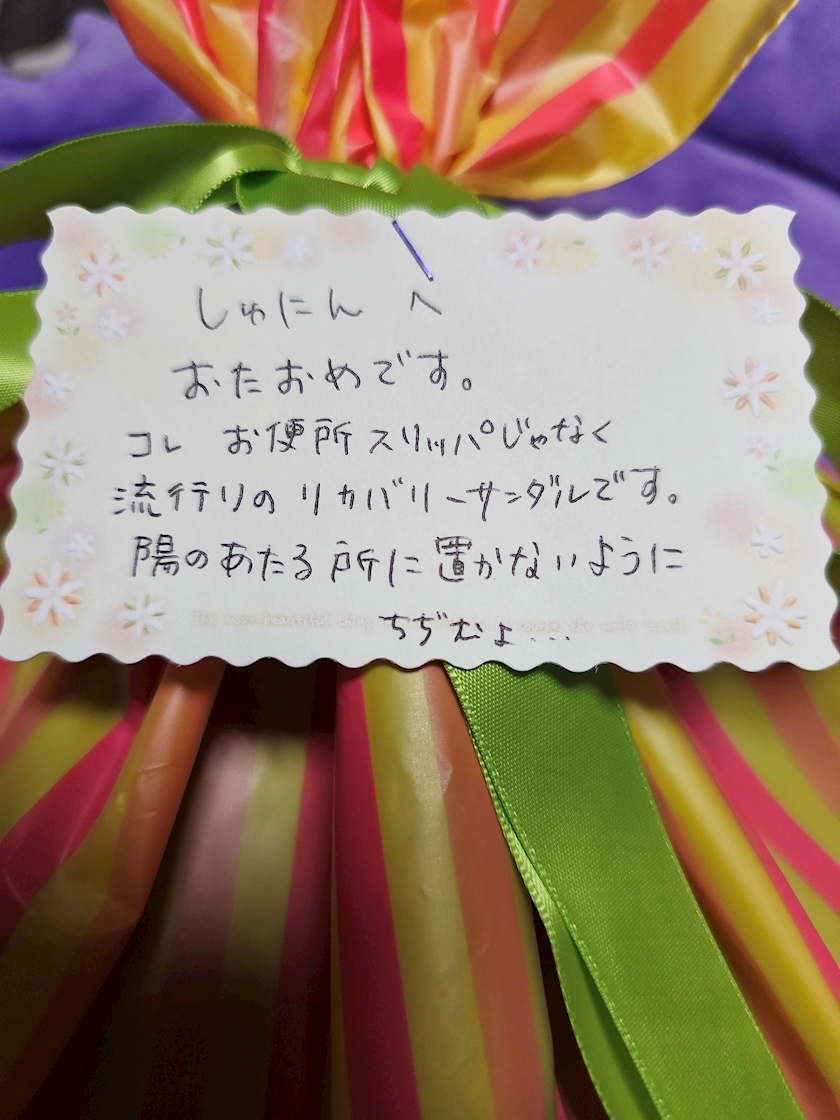 しゅにん へ
おたおめです。
コレ お便所スリッパじゃなく
流行りの リカバリーサンダルです。
陽のあたる所に置かないように
ちぢむよ...